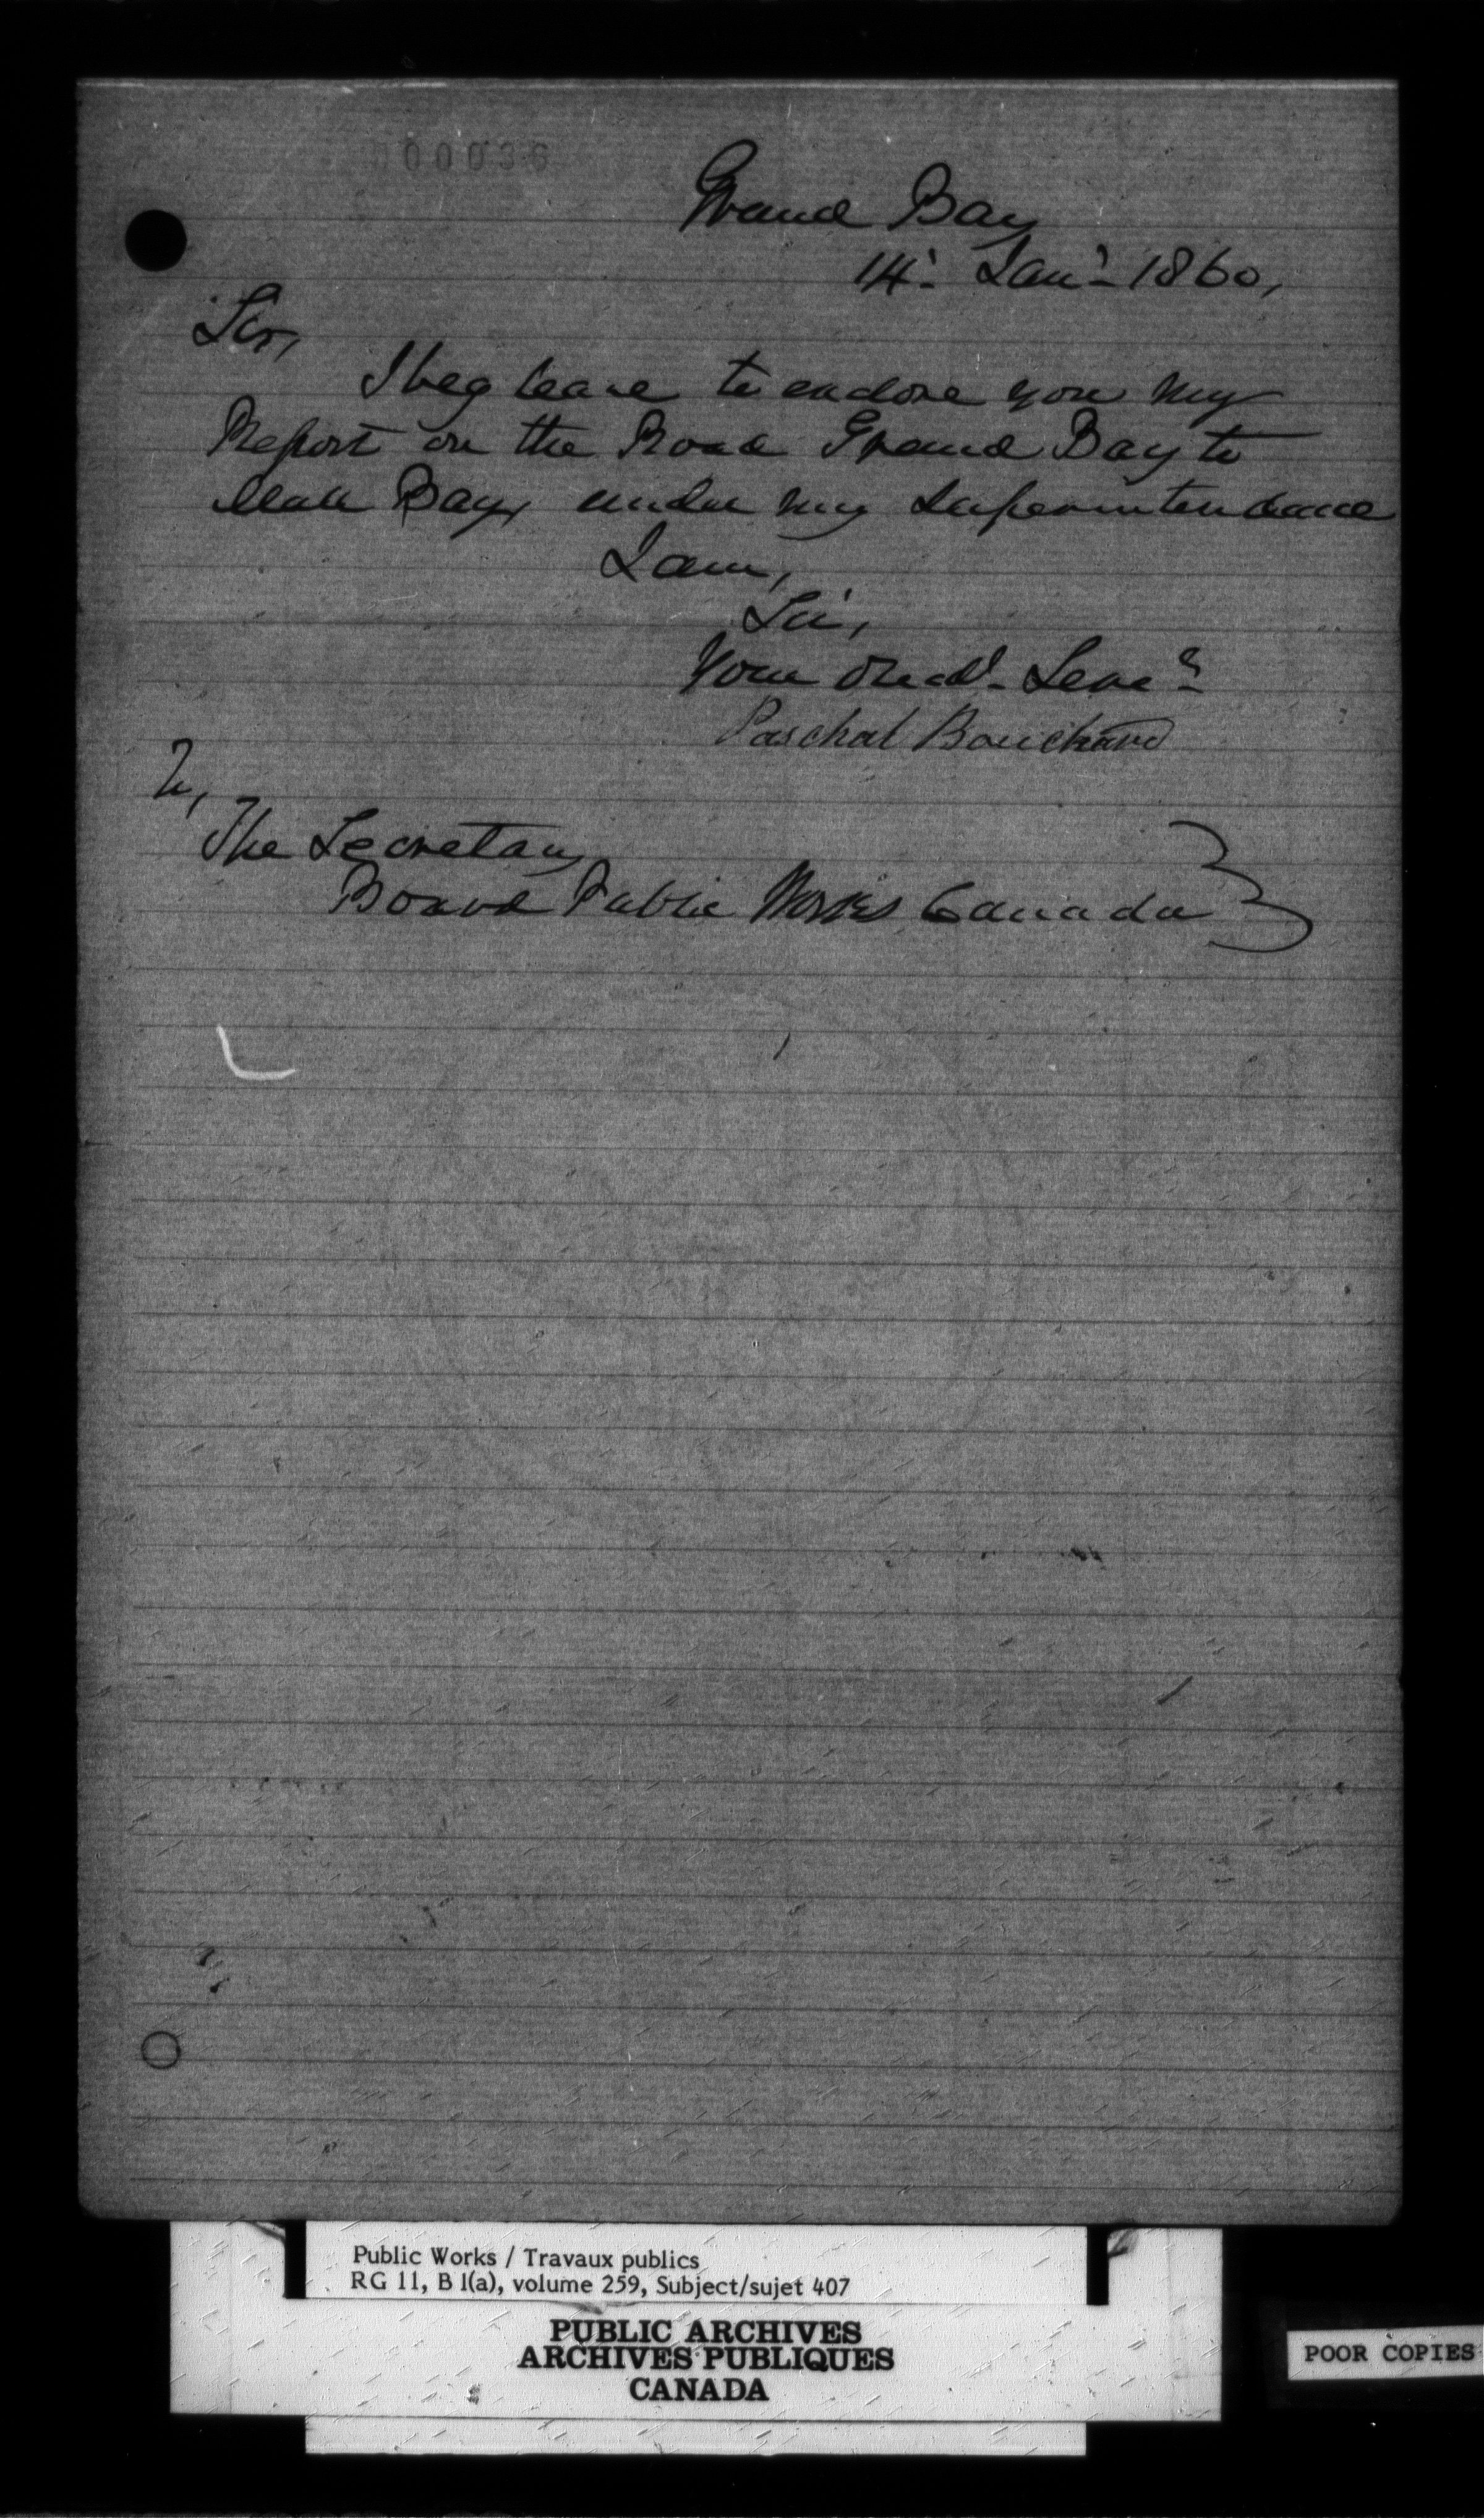 00036
Grand Bay
14' Jan' 1860,
Sir,
I beg leave to enclose you my
Report on the Road Grand Bay to
Bay under my Superintendance
I am,
Sir,
Your Obed' Serv'
Paschal Bouchard
To,
The Secretary
Board Public Works Canada
Public Works / Travaux publics
RG 11, B 1(a), volume 259, Subject/sujet 407
PUBLIC ARCHIVES
ARCHIVES PUBLIQUES
CANADA
POOR COPIES